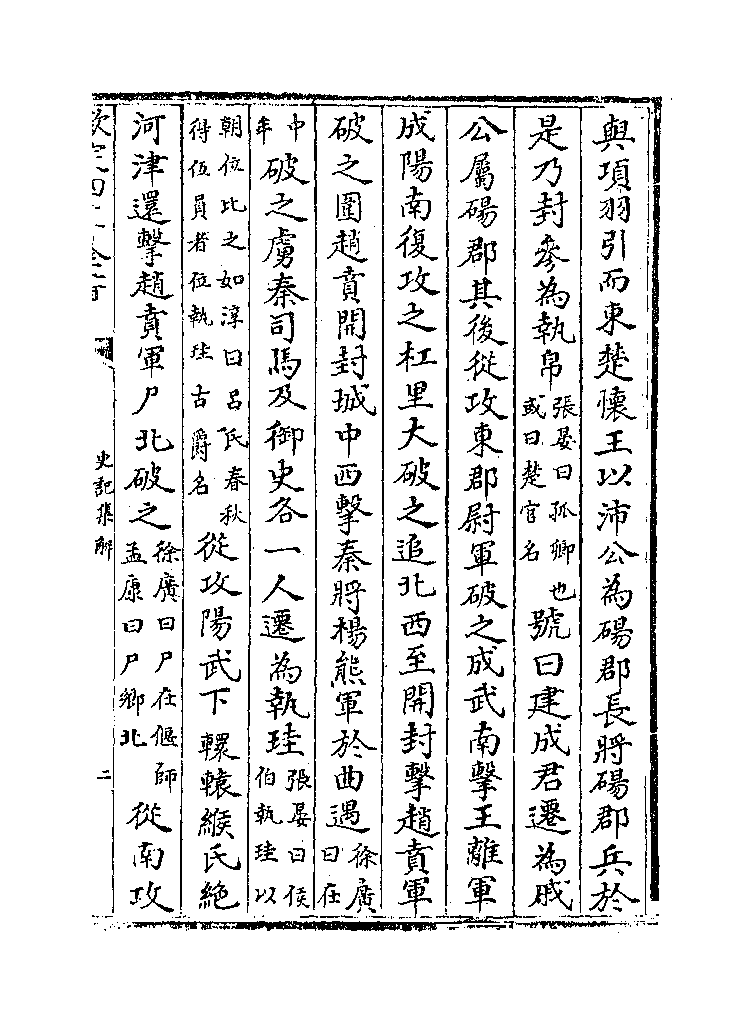 與項羽引而東楚懷王以沛公為碭郡長將碭郡兵於
是乃封參為執帛張晏曰孤卿也或曰楚官名號曰建成君遷為戚
公屬碭郡其後從攻東郡尉軍破之成武南擊王離軍
成陽南復攻之杠里大破之追北西至開封擊趙賁軍
破之圍趙賁開封城中西擊秦將楊熊軍於曲遇徐廣曰在
中牟破之虜秦司馬及御史各一人遷為執珪張晏曰侯伯執珪以
朝位比之如淳曰呂氏春秋得伍員者位執珪古爵名從攻陽武下轘轅緱氏絶
河津還擊趙賁軍尸北破之徐廣曰尸在偃師孟康曰尸鄉北從南攻
史記集解
二